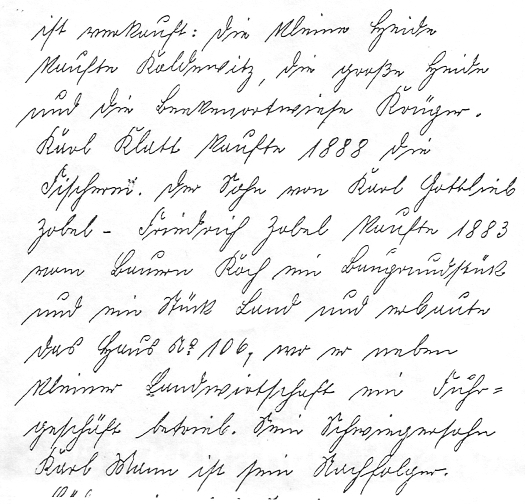 ist verkauft: die kleine Heide
kaufte Koldewitz, die große Heide
und die Beekenortwiese Krüger.
Karl Klatt kaufte 1888 die
Fischerei. Der Sohn von Karl Gottlieb
Zobel - Friedrich Zobel kaufte 1883
vom Bauern Koch ein Baugrundstück
und ein Stück Land und erbaute
das Haus No 106, wo er neben
kleiner Landwirtschaft ein Fuhr=
geschäft betrieb. Sein Schwiegersohn
Karl Mann ist sein Nachfolger.